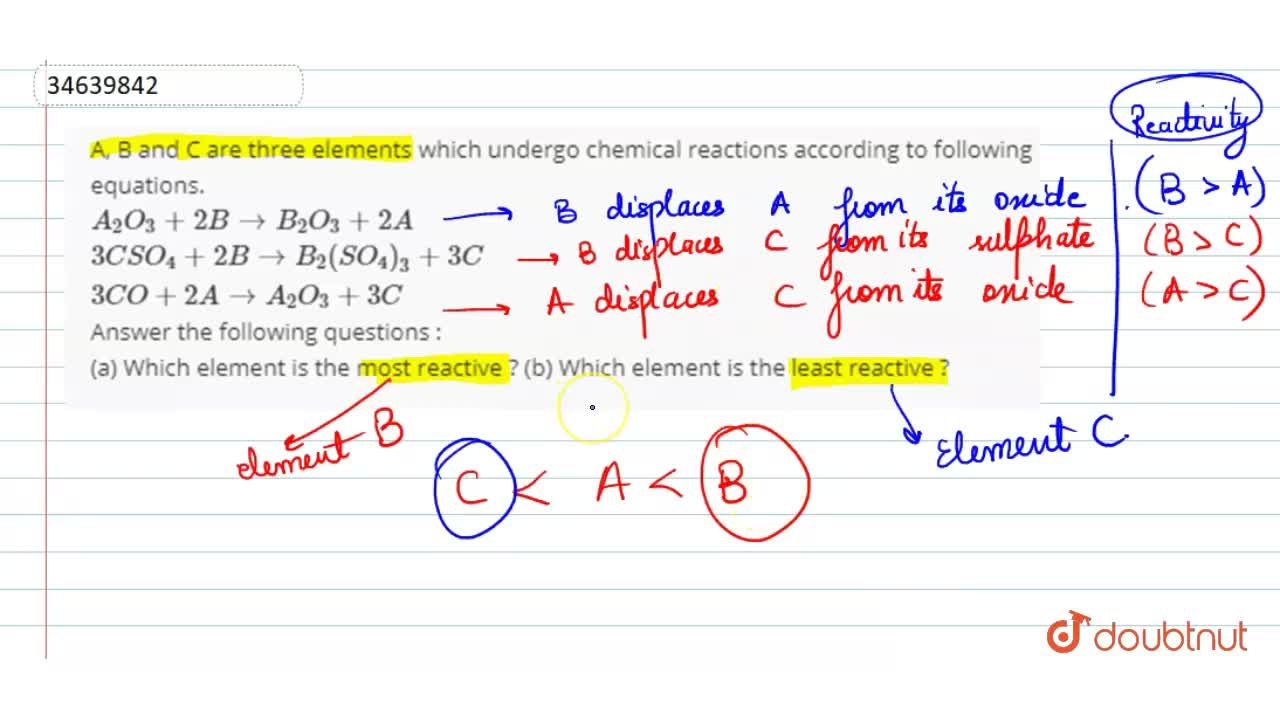 34639842
Reactivity
A, B and C are three elements which undergo chemical reactions according to following
equations.
A₂O₃ + 2B → B₂O₃ + 2A → B displaces A from its oxide (B > A)
3CSO₄ + 2B → B₂(SO₄)₃ + 3C → B displaces C from its sulphate (B > C)
3CO + 2A → A₂O₃ + 3C → A displaces C from its oxide (A > C)
Answer the following questions :
(a) Which element is the most reactive ? (b) Which element is the least reactive ?
element B
Element C
C < A < B
doubtnut